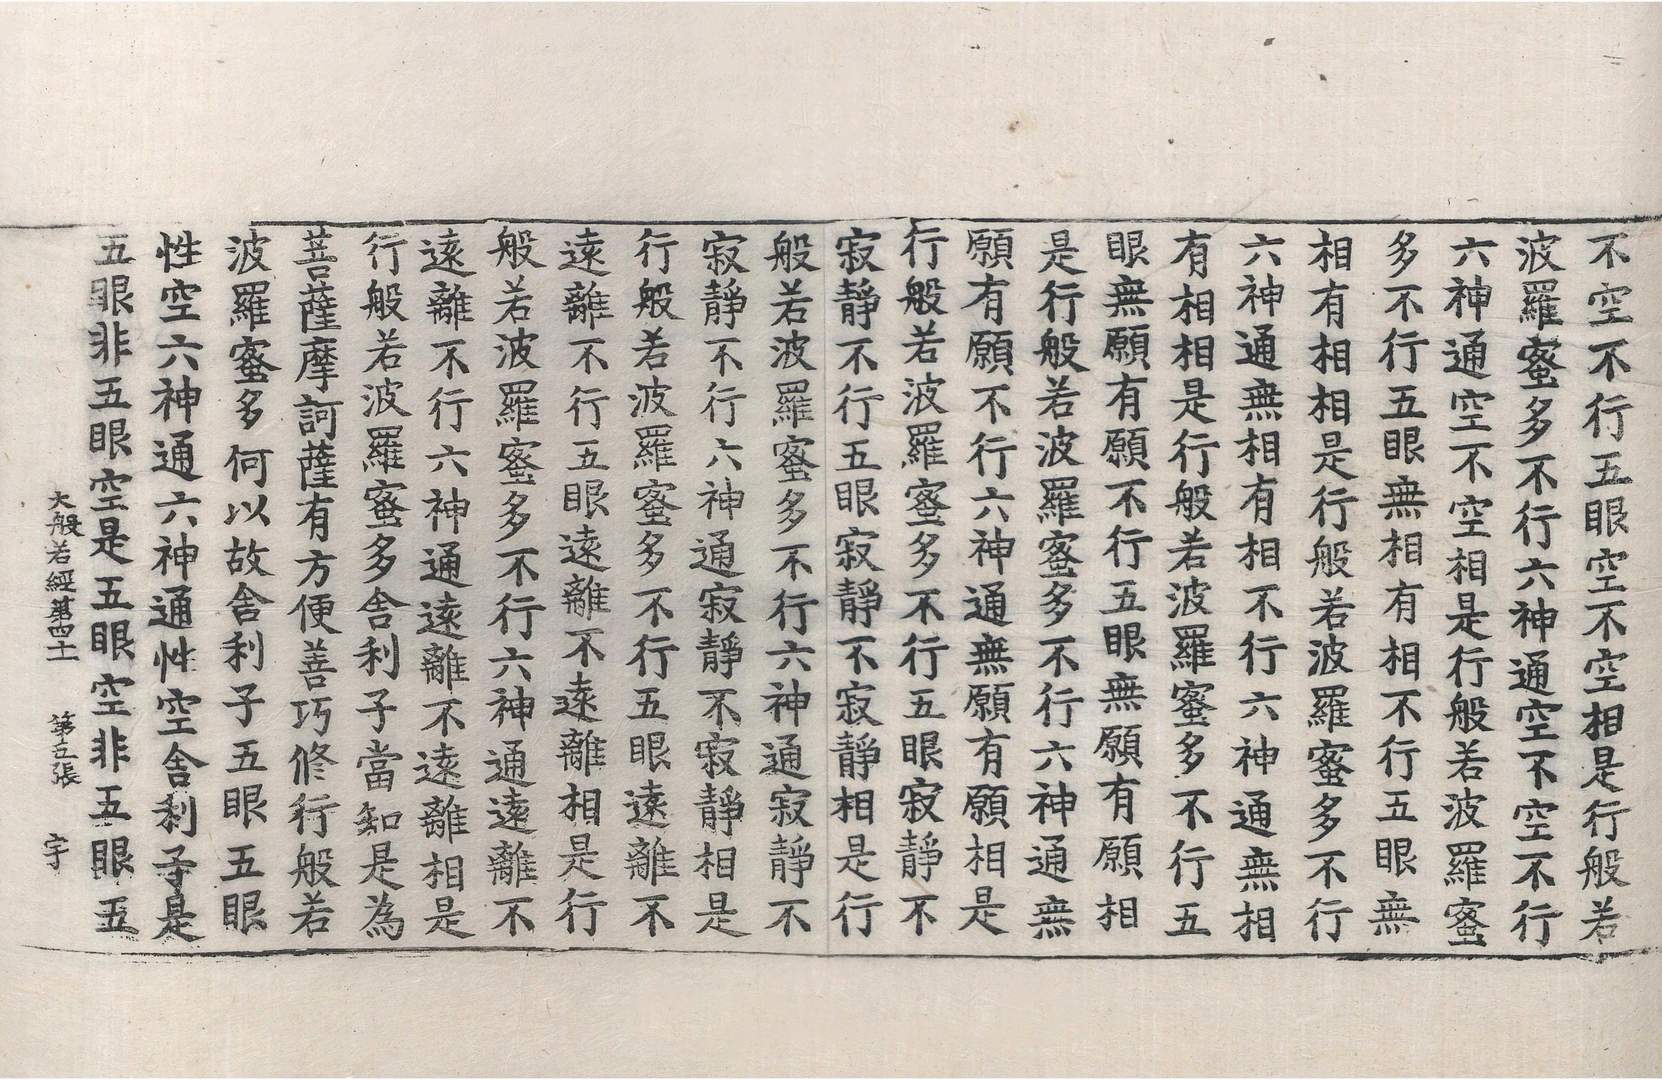 不空不行五眼空不空相是行般若
波羅蜜多不行六神通空不空不行
六神通空不空相是行般若波羅蜜
多不行五眼無相有相不行五眼無
相有相相是行般若波羅蜜多不行
六神通無相有相不行六神通無相
有相相是行般若波羅蜜多不行五
眼無願有願不行五眼無願有願相
是行般若波羅蜜多不行六神通無
願有願不行六神通無願有願相是
行般若波羅蜜多不行五眼寂靜不
寂靜不行五眼寂靜不寂靜相是行
般若波羅蜜多不行六神通寂靜不
寂靜不行六神通寂靜不寂靜相是
行般若波羅蜜多不行五眼遠離不
遠離不行五眼遠離不遠離相是行
般若波羅蜜多不行六神通遠離不
遠離不行六神通遠離不遠離相是
行般若波羅蜜多舍利子當知是為
菩薩摩訶薩有方便善巧修行般若
波羅蜜多何以故舍利子五眼五眼
性空六神通六神通性空舍利子是
五眼非五眼空是五眼空非五眼五
大般若經第四十一 第五張 宇